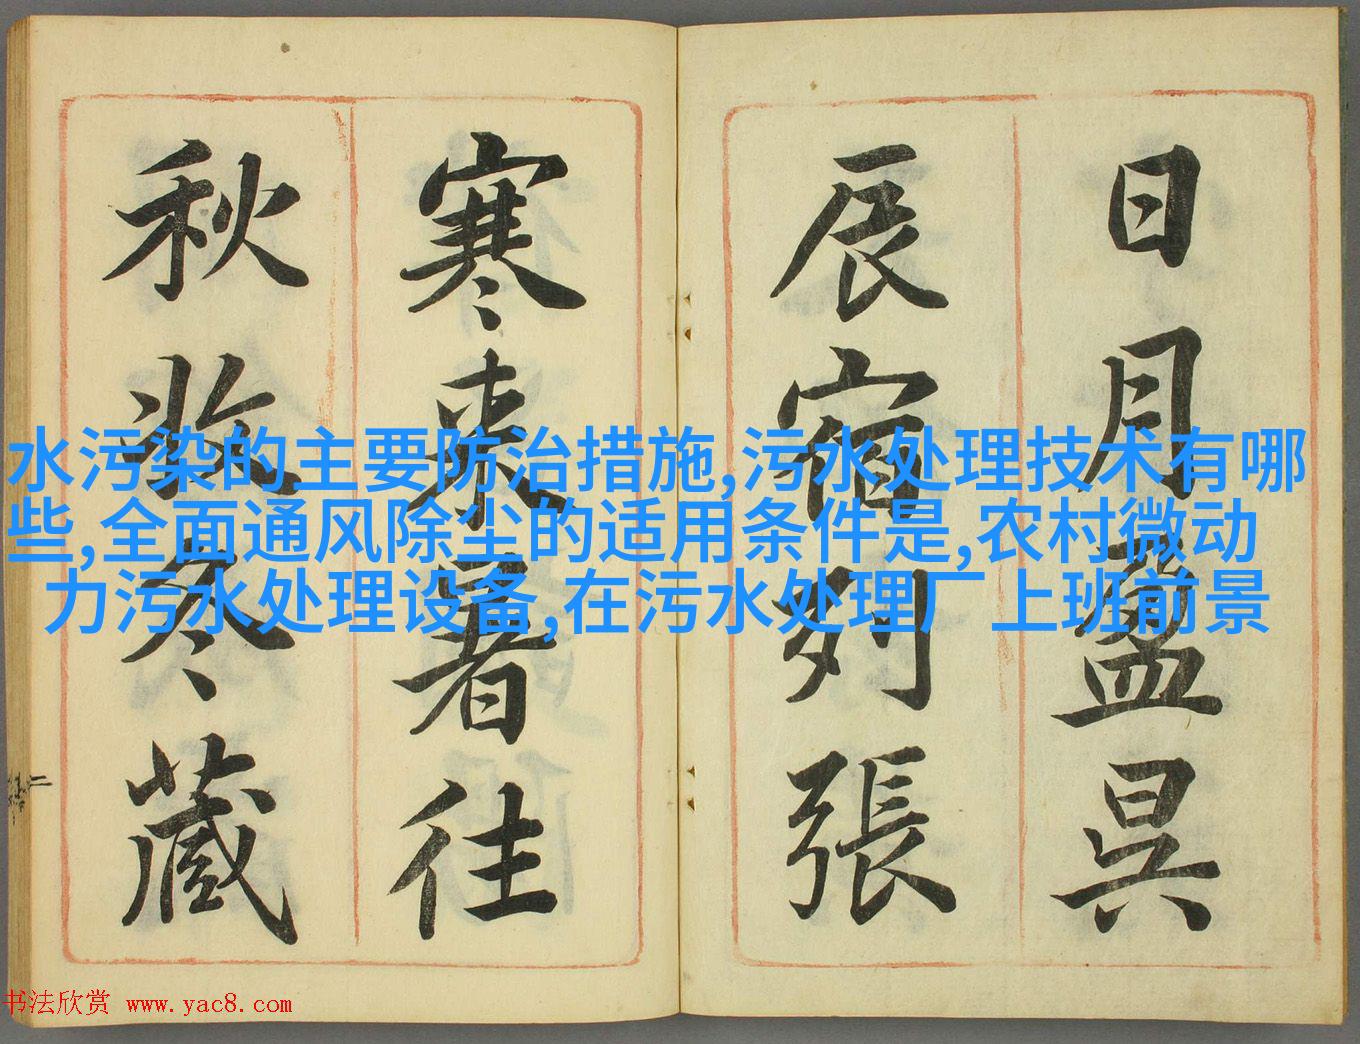 日月盈昃
辰宿列張
寒來暑往
秋收冬藏
水污染的主要防治措施,污水处理技术有哪
些,全面通风除尘的适用条件是,农村微动
力污水处理设备,在污水处理厂上班前景
书法欣赏 www.yac8.com